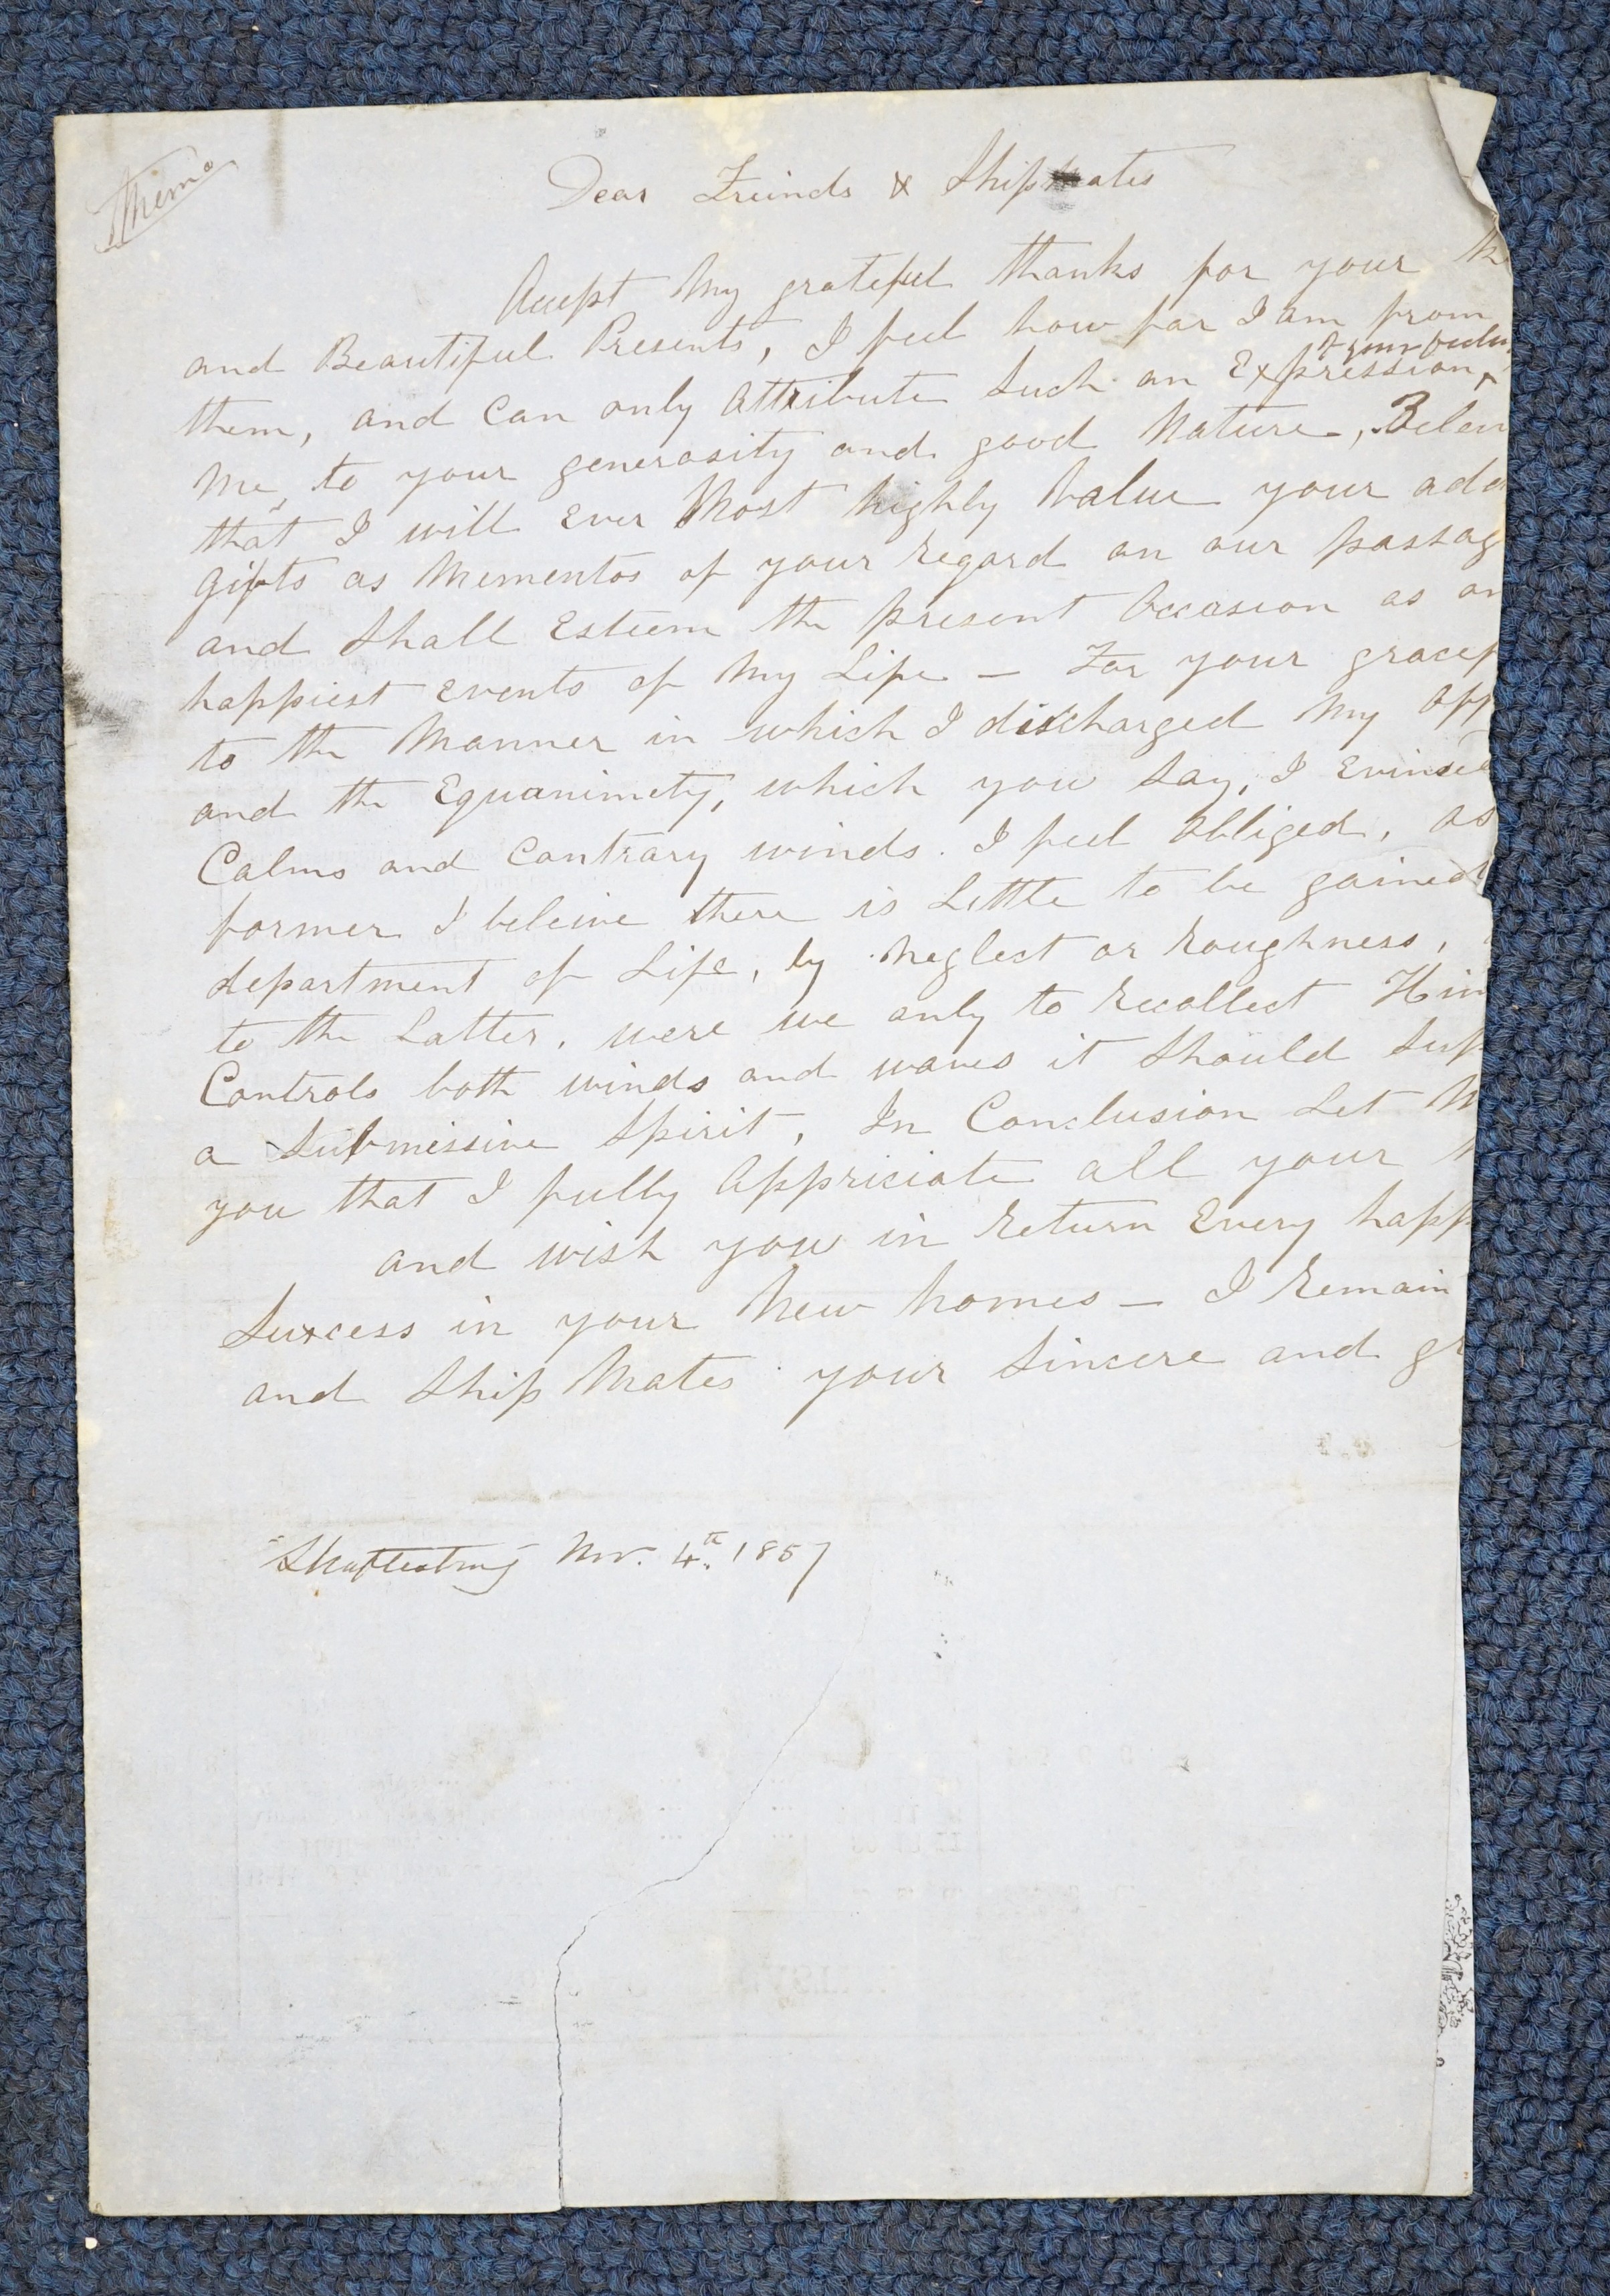 Mem:o
Dear Freinds & Shipmates
Accept My grateful thanks for your
and Beautiful Presents, I feel how far I am from
of your
them, and Can only attribute Such an Expression
Me, to your generosity and good Nature,
that I will Ever Most highly Value your
Gifts as Mementos of your regard on our passag
and Shall Esteem the present Occasion as on
happiest Events of My Life — For your gracef
to the Manner in which I discharged My
and the Equanimety, which you Say, I Evinced
Calms and Contrary winds. I feel Obliged, as
former I beleive there is Little to be gained
department of Life, by Neglect or Roughness,
to the Latter, were we only to recollect Him
Controls both winds and waves it Should Sup
a Submissive Spirit, In Conclusion Let M
you that I fully Appriciate all your
and wish you in Return Every happ
Success in your New homes — I Remain
and Ship Mates your Sincere and gr
Nov. 4th 1857